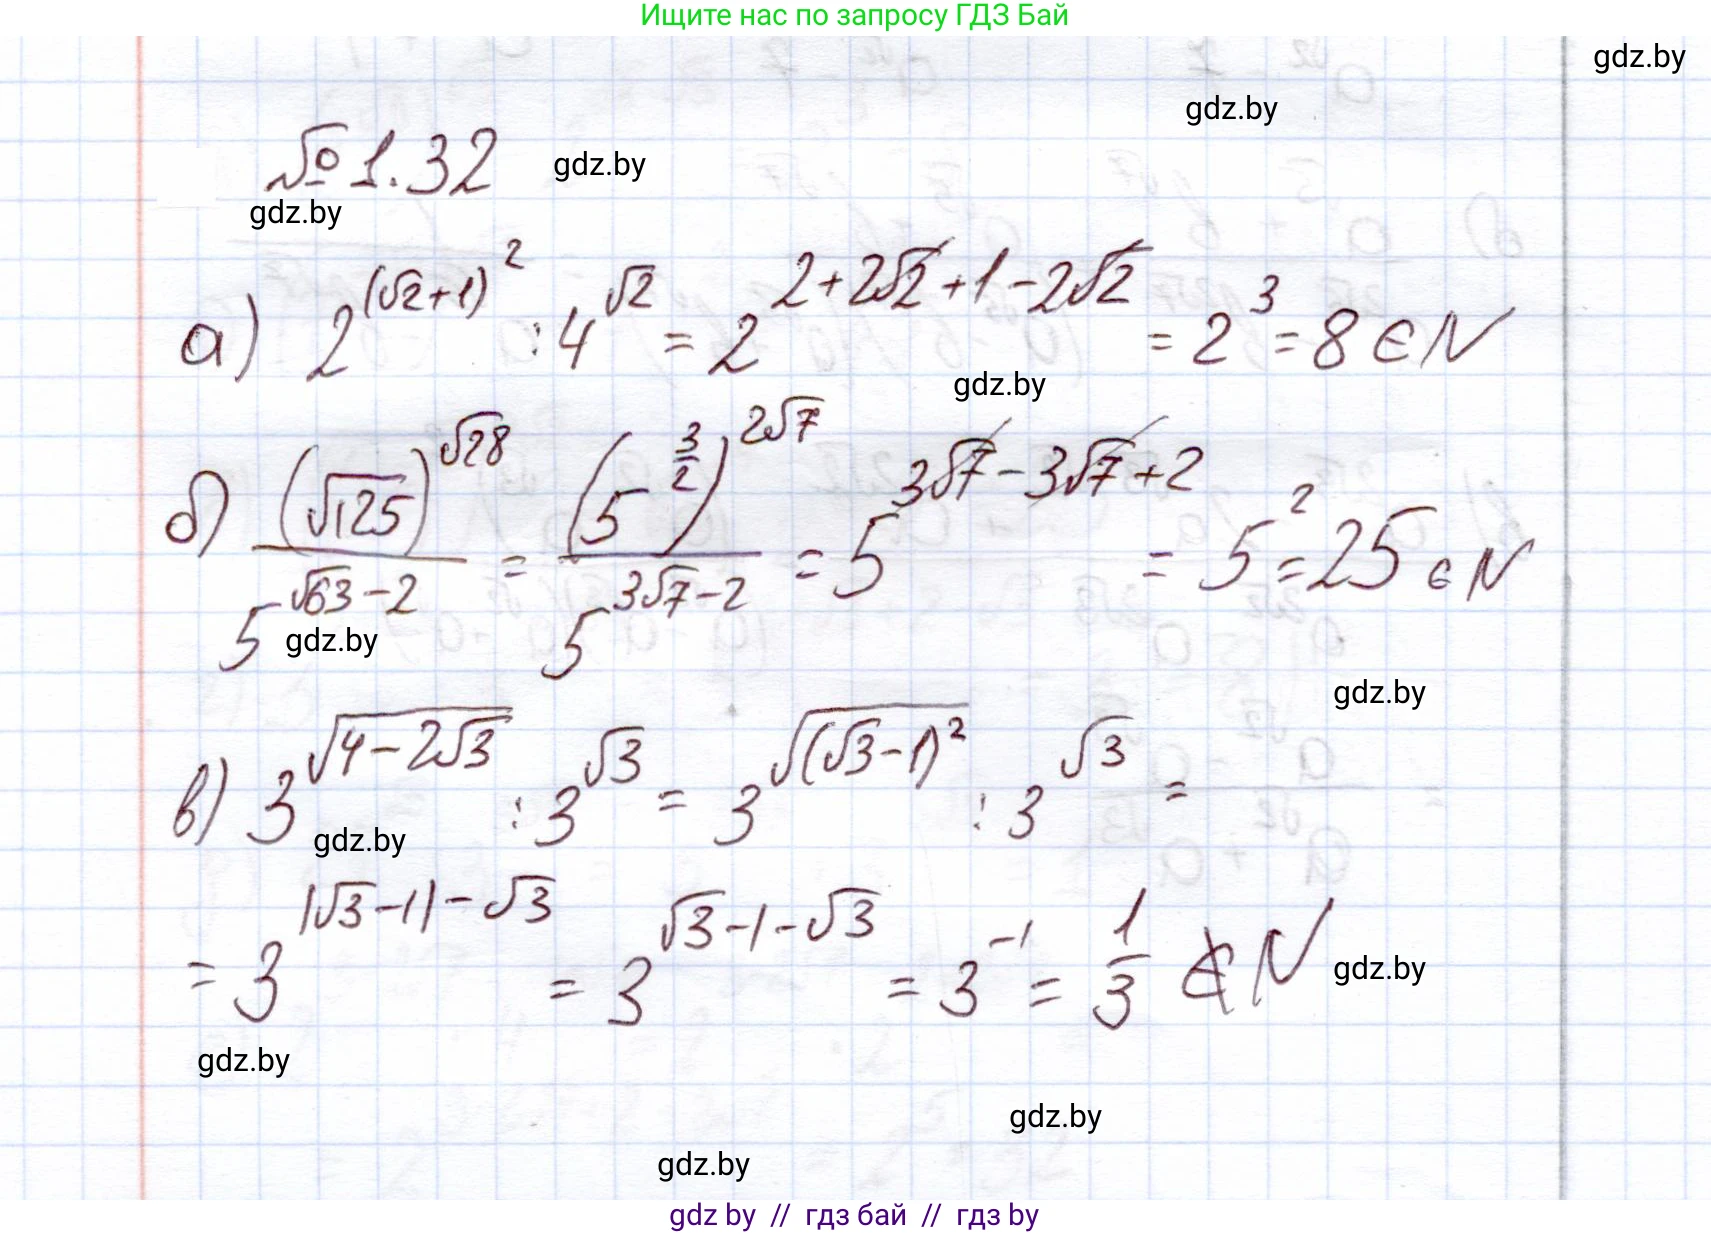 Ищите нас по запросу ГДЗ Бай
gdz.by
gdz.by
№ 1.32 gdz.by
gdz.by
а) 2^{(√2+1)^2} : 4^{√2} = 2^{2+2√2+1-2√2} = 2^3 = 8 ∈ N
gdz.by
б) (√125)^{√28} / 5^{√63-2} = (5^{3/2})^{2√7} / 5^{3√7-2} = 5^{3√7-3√7+2} = 5^2 = 25 ∈ N
gdz.by
gdz.by
в) 3^{√(4-2√3)} : 3^{√3} = 3^{√((√3-1)^2)} : 3^{√3} =
gdz.by
= 3^{|√3-1|-√3} = 3^{√3-1-√3} = 3^{-1} = 1/3 ∉ N gdz.by
gdz.by
gdz.by
gdz.by
gdz by // гдз бай // гдз by